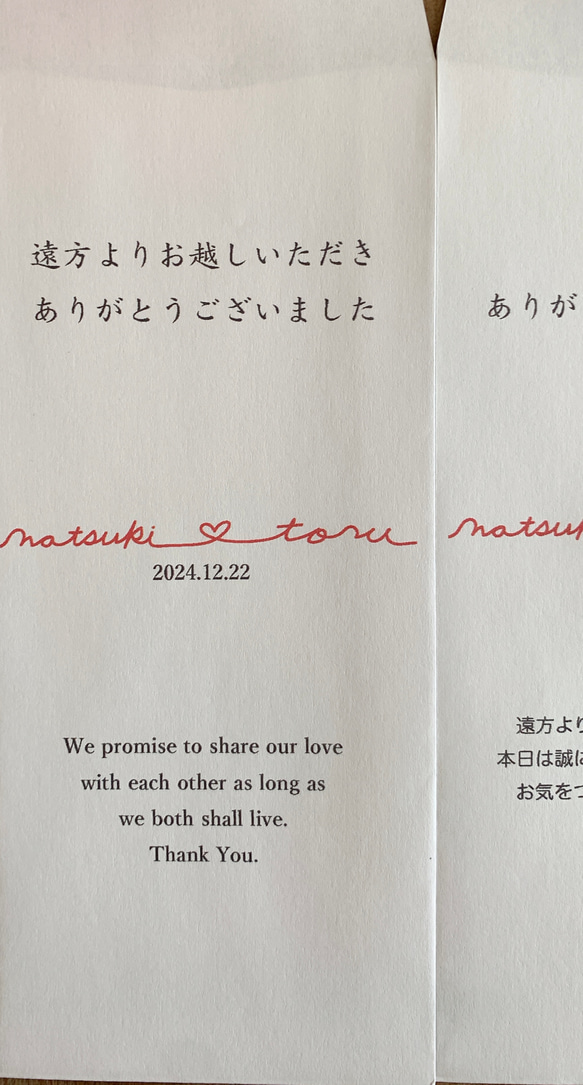 遠方よりお越しいただき
ありがとうございました
natsuki toru
2024.12.22
We promise to share our love
with each other as long as
we both shall live.
Thank You.
ありが
natsuk
遠方より
本日は誠に
お気をつ